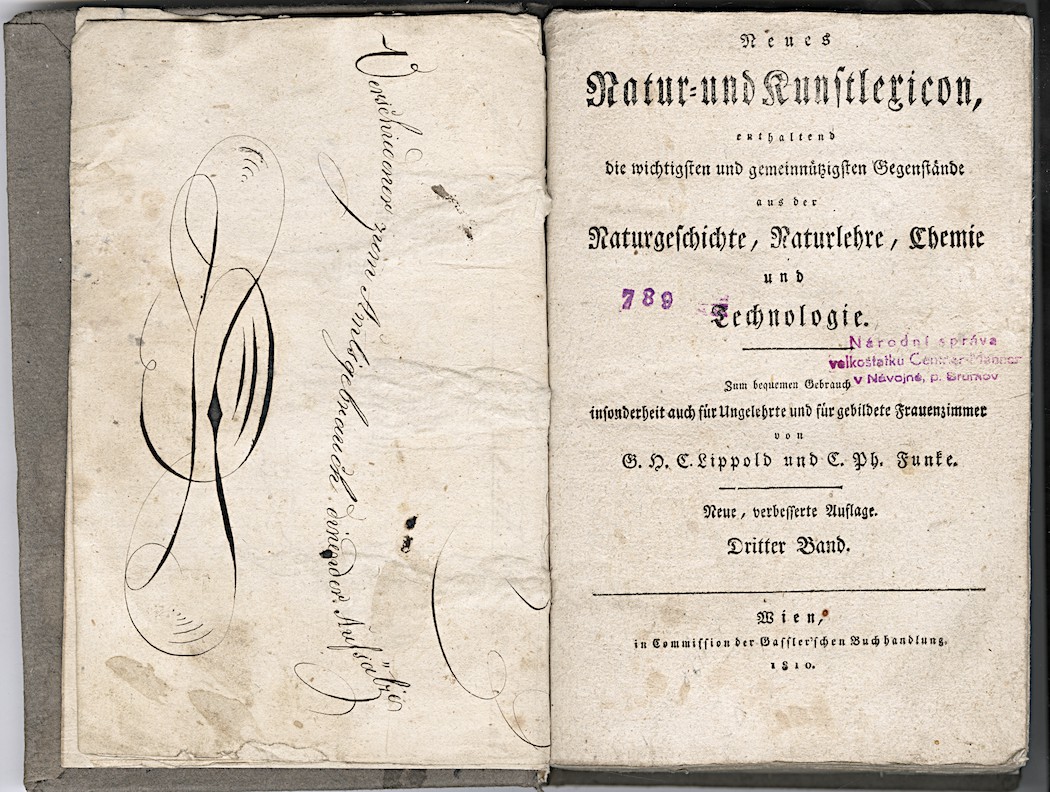 Verschiedener zum Amtsgebrauch
dienender Aufsätze
Neues
Natur- und Kunstlexicon,
enthaltend
die wichtigsten und gemeinnützigsten Gegenstände
aus der
Naturgeschichte, Naturlehre, Chemie
und
789
Technologie.
Národní správa
velkostatku
v Návojné, p. Brumov
Zum bequemen Gebrauch
insonderheit auch für Ungelehrte und für gebildete Frauenzimmer
von
G. H. C. Lippold und C. Ph. Funke.
Neue, verbesserte Auflage.
Dritter Band.
Wien,
in Commission der Gassler'schen Buchhandlung.
1810.